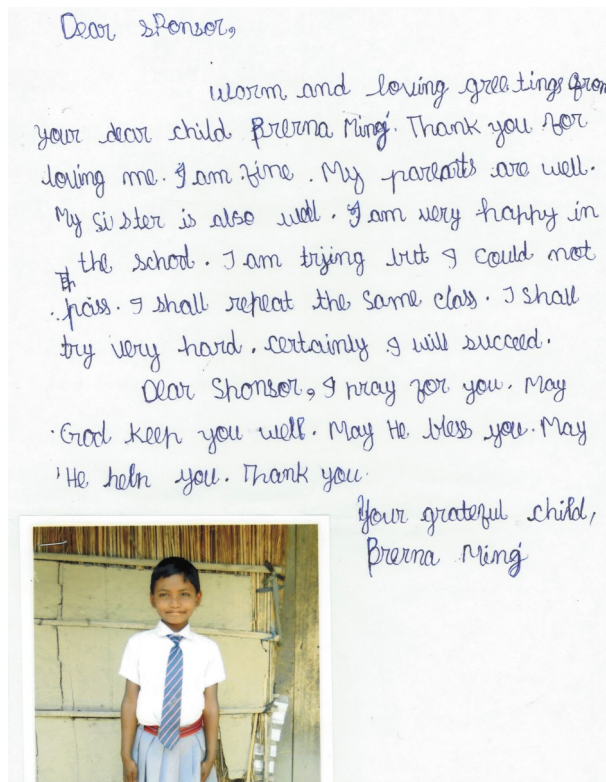 Dear sponsor,
Warm and loving greetings from
your dear child Prerna Ming. Thank you for
loving me. I am fine. My parents are well.
My sister is also well. I am very happy in
the school. I am trying but I could not
pass. I shall repeat the same class. I shall
try very hard. certainly I will succeed.
Dear Sponsor, I pray for you. May
God keep you well. May He bless you. May
He help you. Thank you.
Your grateful child,
Prerna Ming